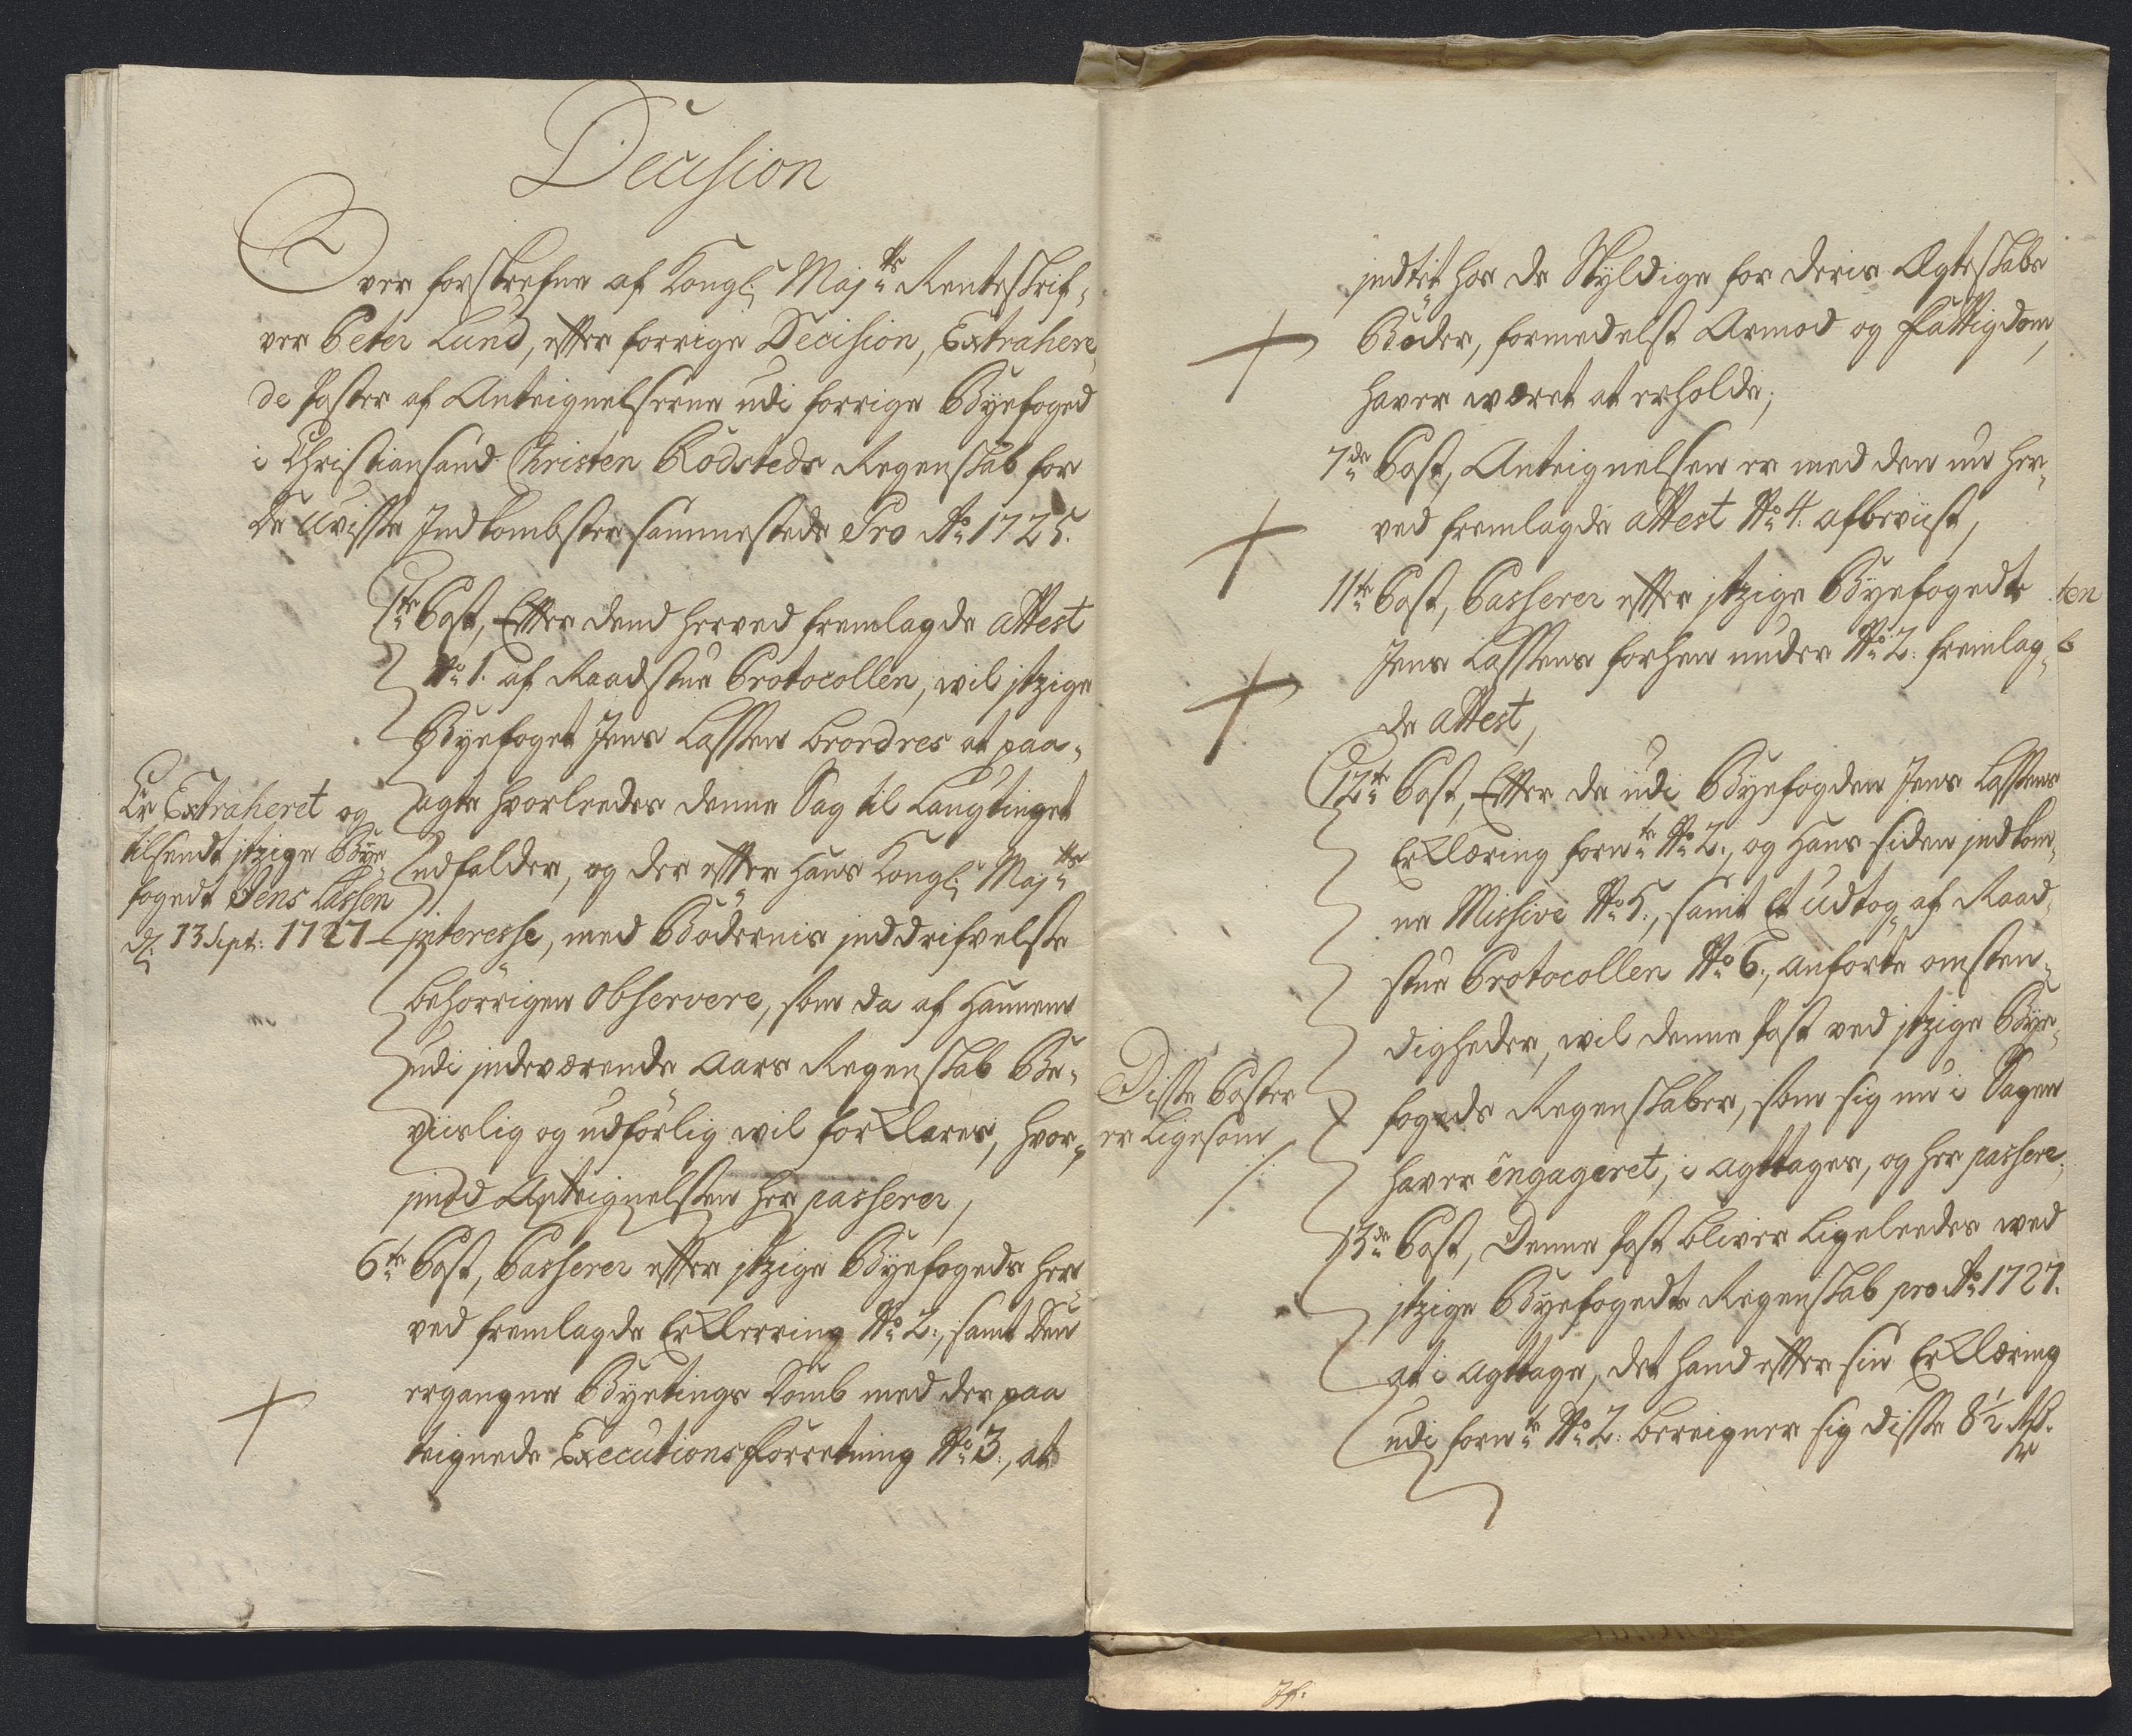 Decision
Over forskrefne af Kongl: Maj:ts Renteskrif-
ver Peter Lund, efter forrige Decision, Extrahere-
de Poster af Anteignelserne udi forrige Byefoged
i Christiansand Christen Rödsteds Regenskab for
de Uvisse Indkombster sammesteds Pro Ao: 1725.
1te Post, Efter dend herved fremlagde Attest
No: 1. af Raadstue Protocollen, vil itzige
Byefoget Jens Lassen beordres at paa-
agte hvorleedes denne Sag til Laugtinget
udfalder, og der efter Hans Kongl: Maj:ts
interesse, med Bödernis inddrifvelse
behörrigen Observere, som da af Hannem
udi indeværende Aars Regenskab Be-
viislig og udförlig vil forklares, hvor-
imod Anteignelsen her passerer,
Er Extraheret og
tilsendt itzige Bye-
fogedt Jens Lassen
d: 13 Sept: 1727
6te Post, Passerer efter itzige Byefogeds her-
ved fremlagde Erklerring No: 2., samt Den
ergangne Byetings Domb med der paa
teignede Executions Forretning No: 3., at
intet hos de Skyldige for deris Ægteskabs
Böder, formedelst Armod og Fattigdom,
haver wæret at erholde;
7de Post, Anteignelsen er med den nu her-
ved fremlagde Attest No: 4. afbeviist,
11te Post, Passerer efter itzige Byefogedts
Jens Lassens forhen under No: 2. fremlag-
de Attest,
12te Post, Efter de udi Byefogden Jens Lassens
Erklæring fornte No: 2., og Hans siden indkom-
ne Missive No: 5., samt Et Udtog af Raad-
stue Protocollen No: 6., anforte omsten-
digheder, vil denne Post ved itzige Bye-
fogeds Regenskaber, som sig nu i Sagen
haver engageret, i agttages, og her passere;
Disse Poster
er Ligesom
/:
13de Post, Denne Post bliver Ligeleedes ved
itzige Byefogedts Regenskab pro Ao: 1727.
at i agttage, det hand efter sin Erklæring
udi fornte No: 2. bereigner sig disse 8½ Rd.
ten